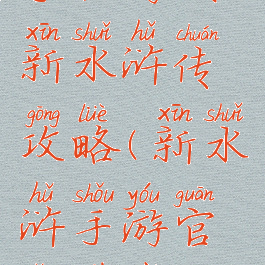 xīn shuǐ hǔ chuán
新水浒传
gōng lüè xīn shuǐ
攻略(新水
hǔ shǒu yóu guān
浒手游官